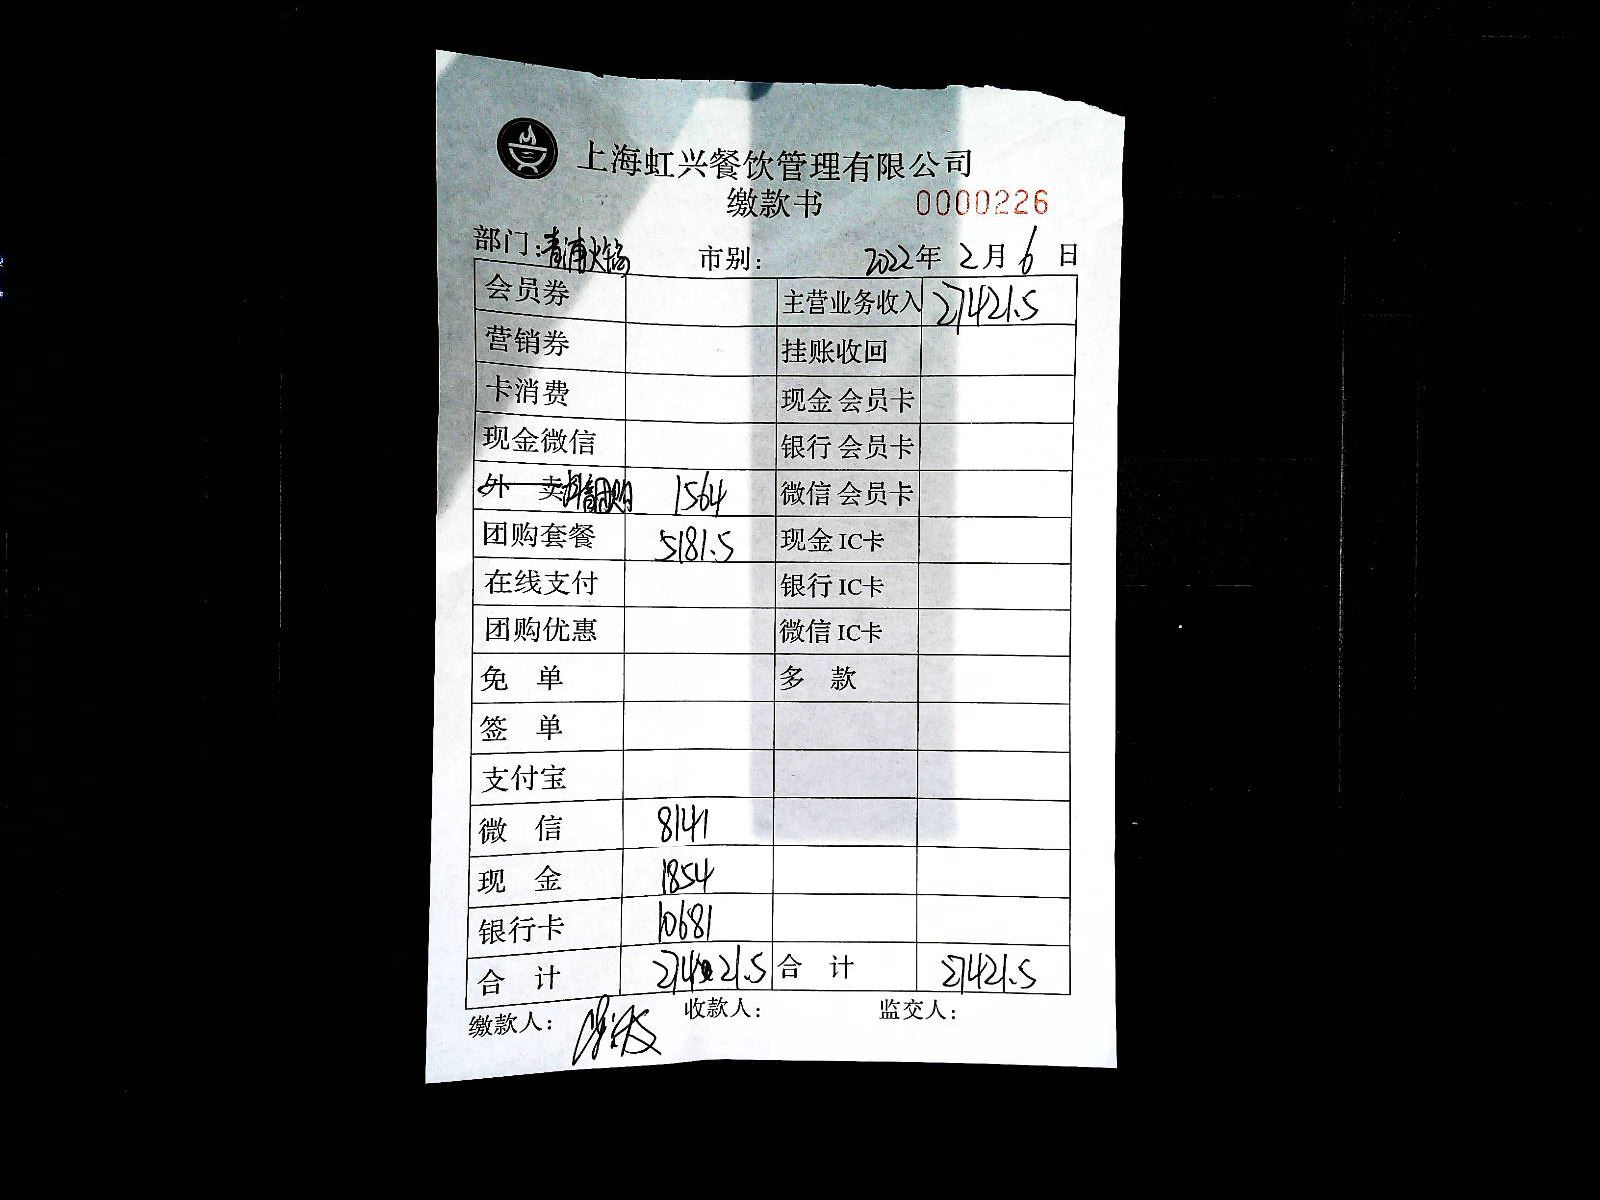 上海虹兴餐饮管理有限公司
缴款书 0000226
部门：青浦火锅 市别： 2022年2月6日
会员券 主营业务收入 27421.5
营销券 挂账收回
卡消费 现金 会员卡
现金微信 银行 会员卡
外卖 抖音团购 1564 微信 会员卡
团购套餐 5181.5 现金 IC卡
在线支付 银行 IC卡
团购优惠 微信 IC卡
免 单 多 款
签 单
支付宝
微 信 8141
现 金 1854
银行卡 10681
合 计 27421.5 合 计 27421.5
缴款人： 收款人： 监交人：